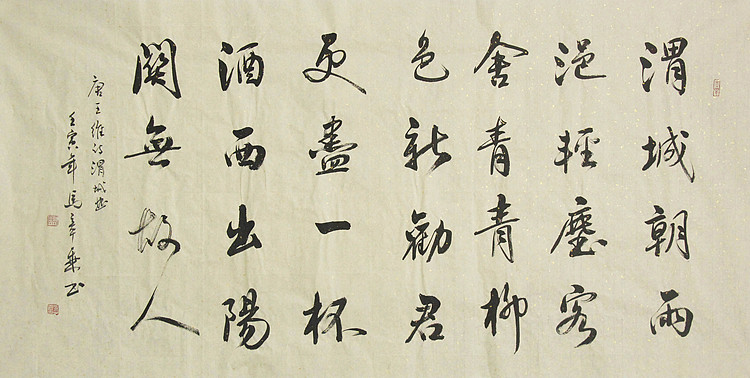 渭城朝雨
浥輕塵客
舍青青柳
色新勸君
更盡一杯
酒西出陽
關無故人
唐王維詩渭城曲
壬寅年馬章乘书